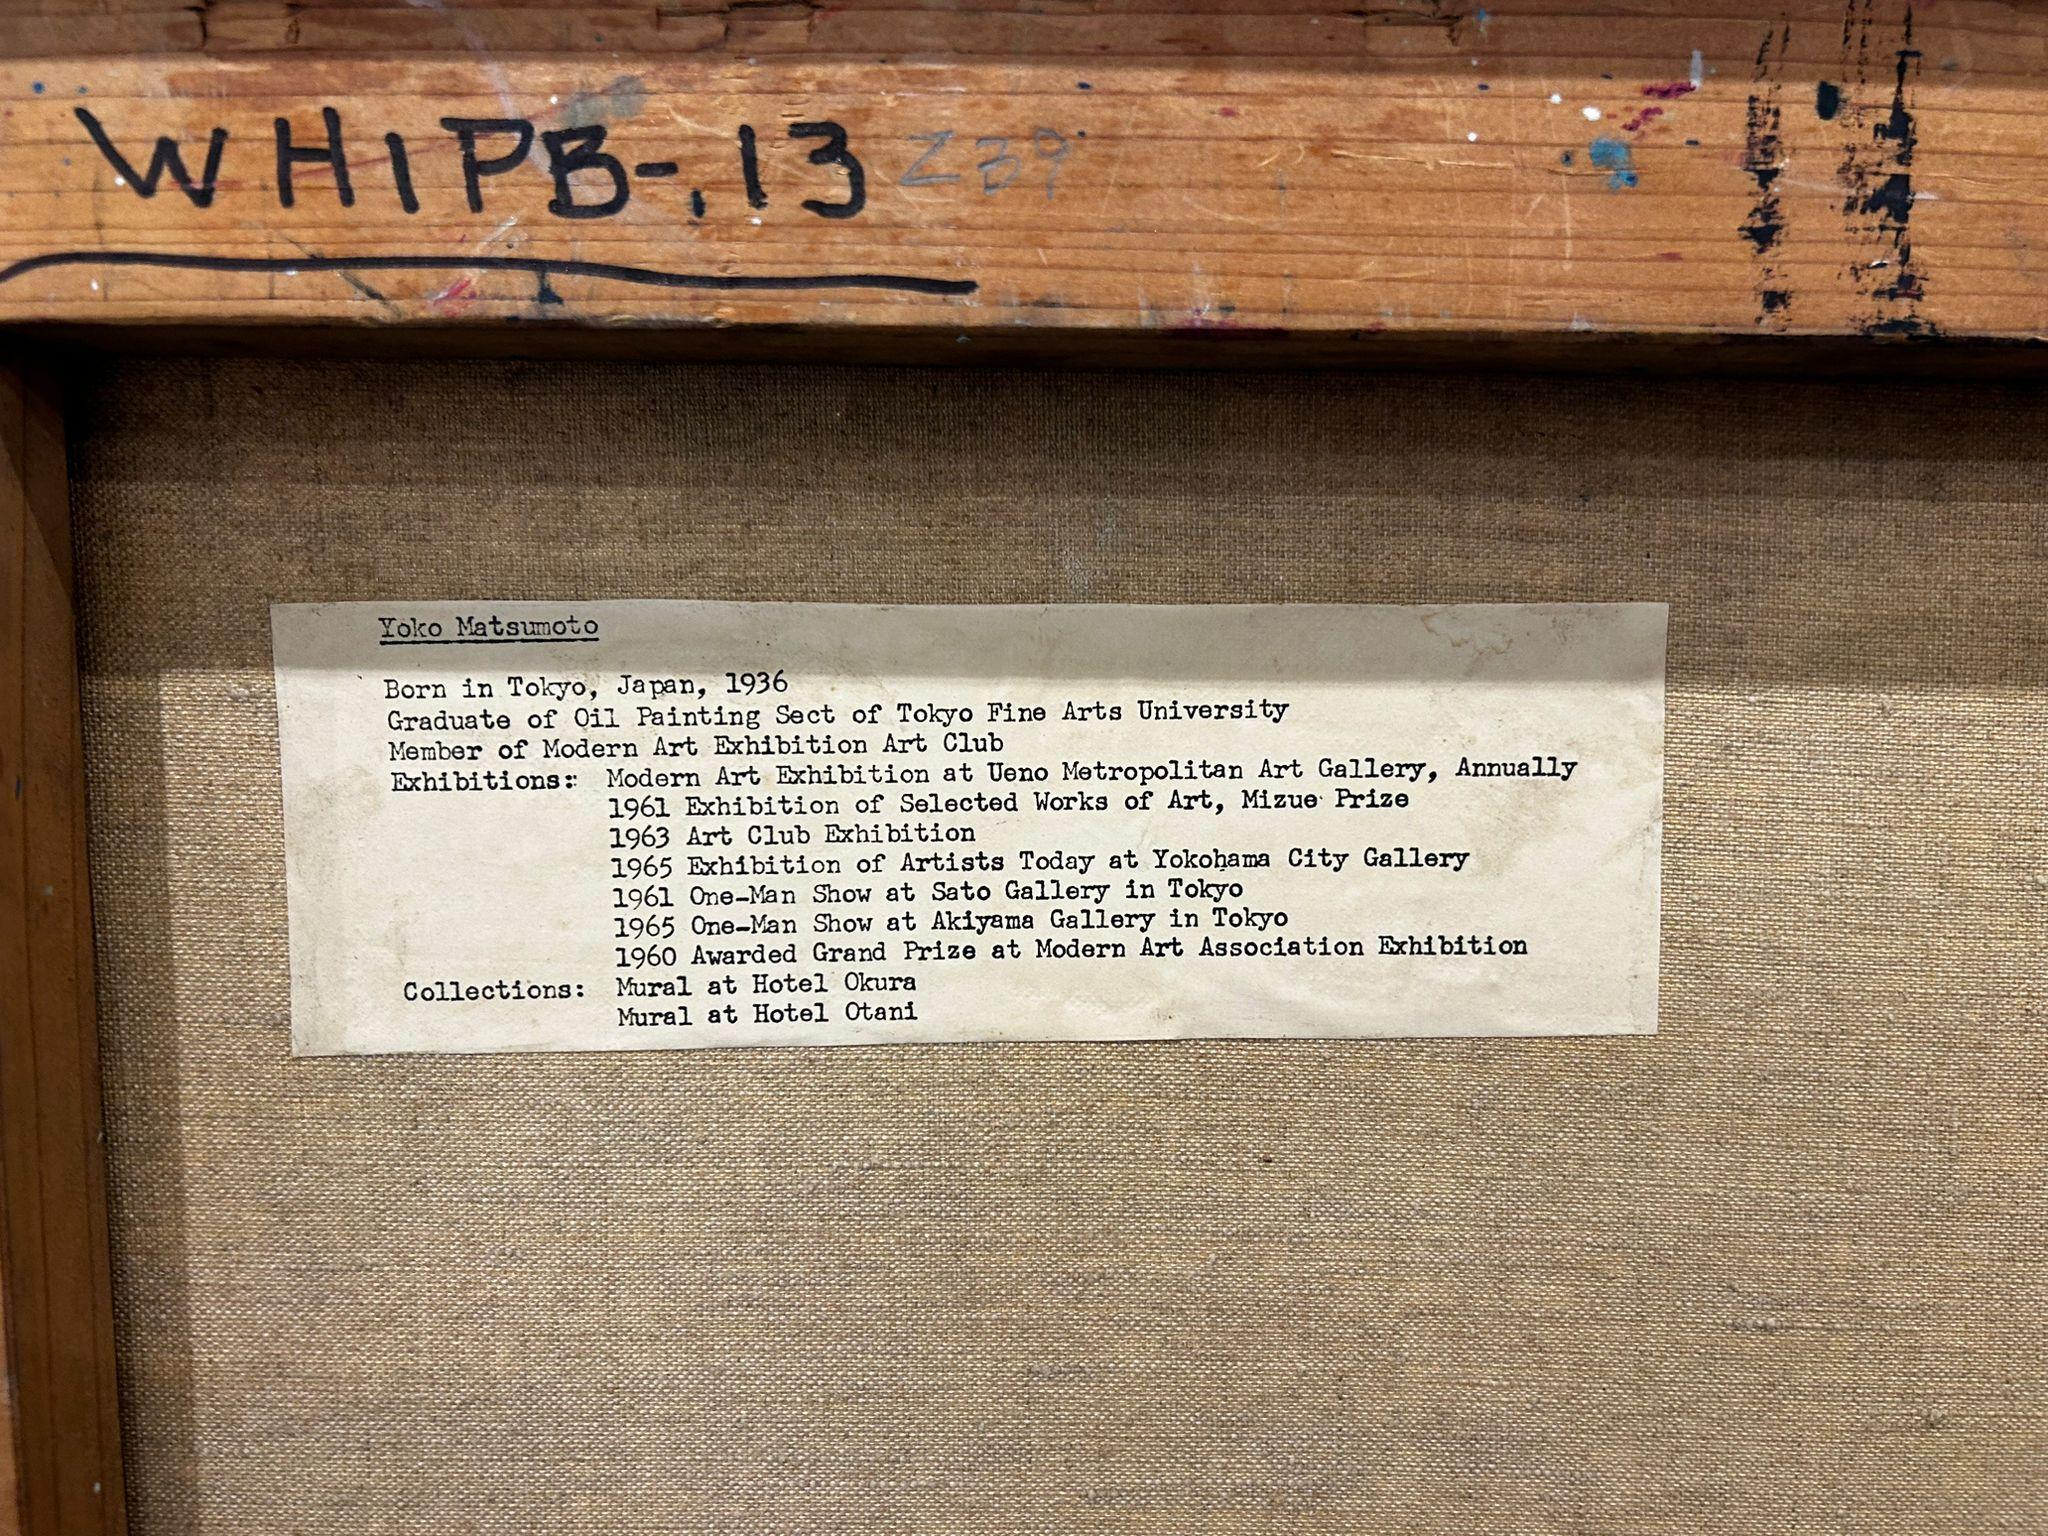 WHIPB-.13 Z39
Yoko Matsumoto
Born in Tokyo, Japan, 1936
Graduate of Oil Painting Sect of Tokyo Fine Arts University
Member of Modern Art Exhibition Art Club
Exhibitions: Modern Art Exhibition at Ueno Metropolitan Art Gallery, Annually
1961 Exhibition of Selected Works of Art, Mizue Prize
1963 Art Club Exhibition
1965 Exhibition of Artists Today at Yokohama City Gallery
1961 One-Man Show at Sato Gallery in Tokyo
1965 One-Man Show at Akiyama Gallery in Tokyo
1960 Awarded Grand Prize at Modern Art Association Exhibition
Collections: Mural at Hotel Okura
Mural at Hotel Otani